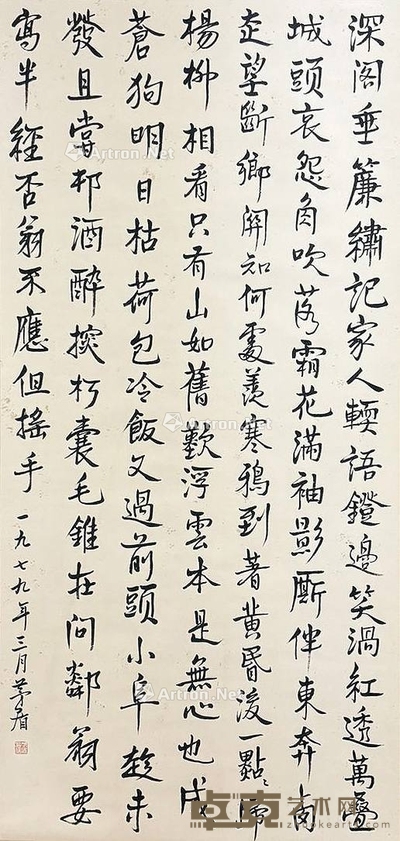 深閣垂簾繡記家人輭語鐙邊笑渦紅透萬疊
城頭哀怨角吹落霜花滿袖影厮伴東奔西
走望斷鄉關知何處羨寒鴉到著黃昏後一點點歸
楊柳相看只有山如舊歎浮雲本是無心也成
蒼狗明日枯荷包冷飯又過前頭小阜趁未
發且嘗邨酒醉探朽囊毛錐在問鄰翁要
寫半經否翁不應但搖手
一九七九年三月茅盾
Artron.Net
卓克艺术网